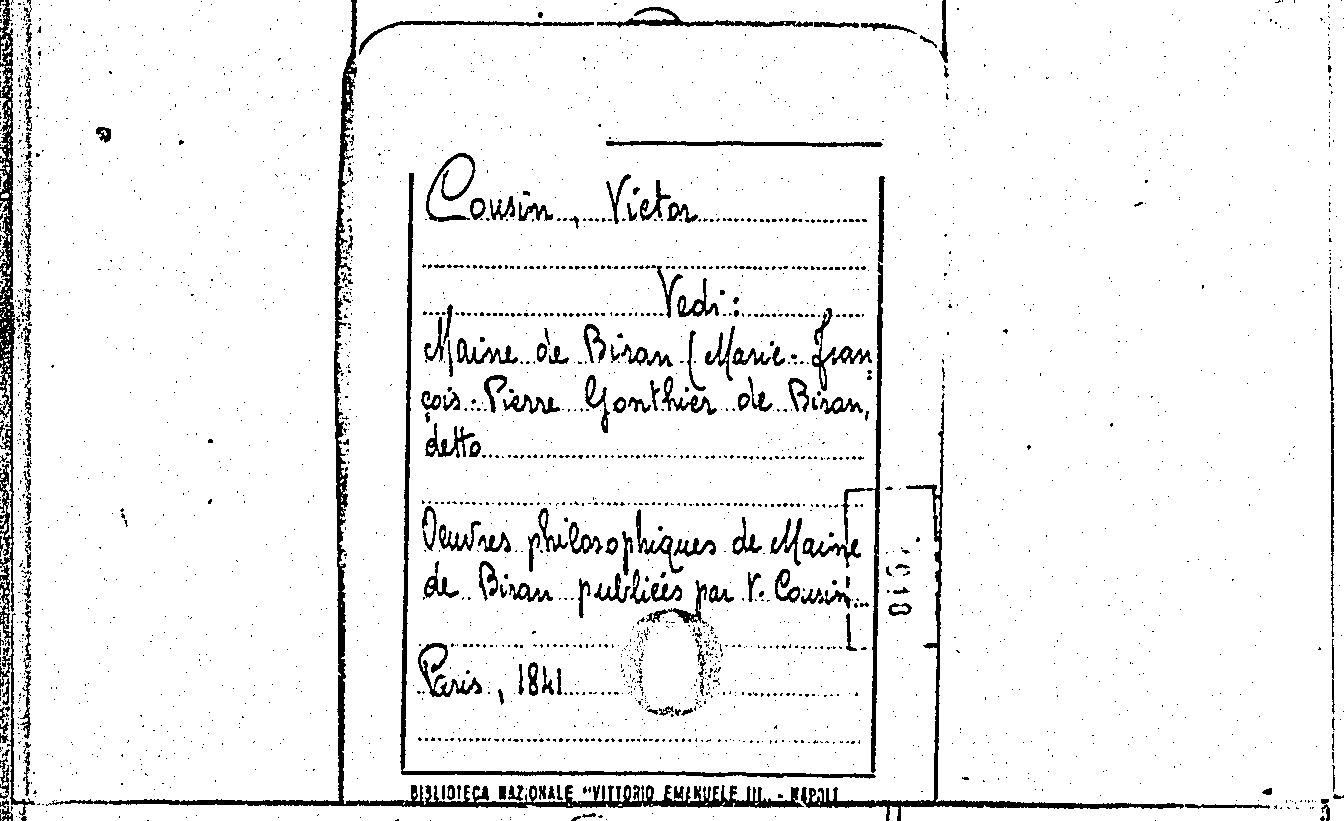 Cousin, Victor
Vedi:
Maine de Biran (Marie-Fran
çois-Pierre Gonthier de Biran,
detto
Oeuvres philosophiques de Maine
de Biran publiées par V. Cousin
Paris, 1841
BIBLIOTECA NAZIONALE "VITTORIO EMANUELE III„ - NAPOLI